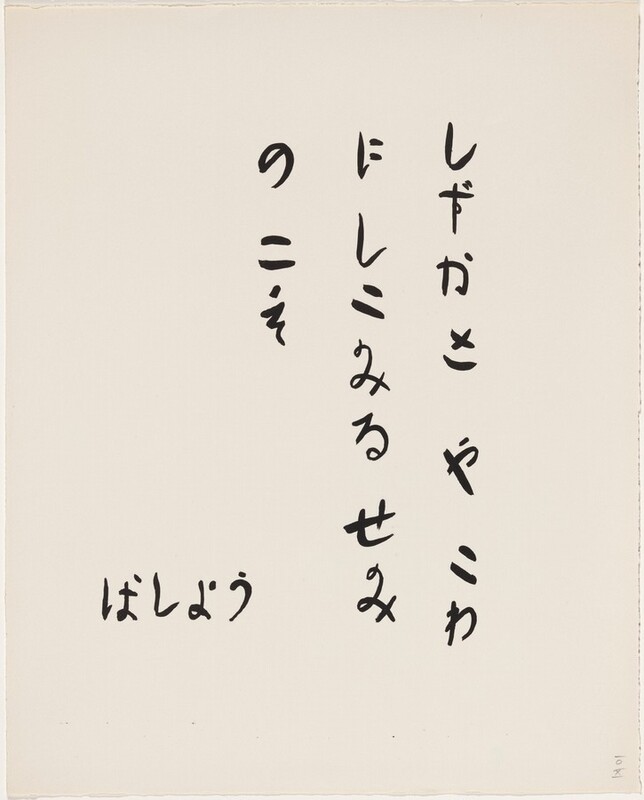 しずかさ や こわ
にしこみる せみ
の こえ
ばしよう